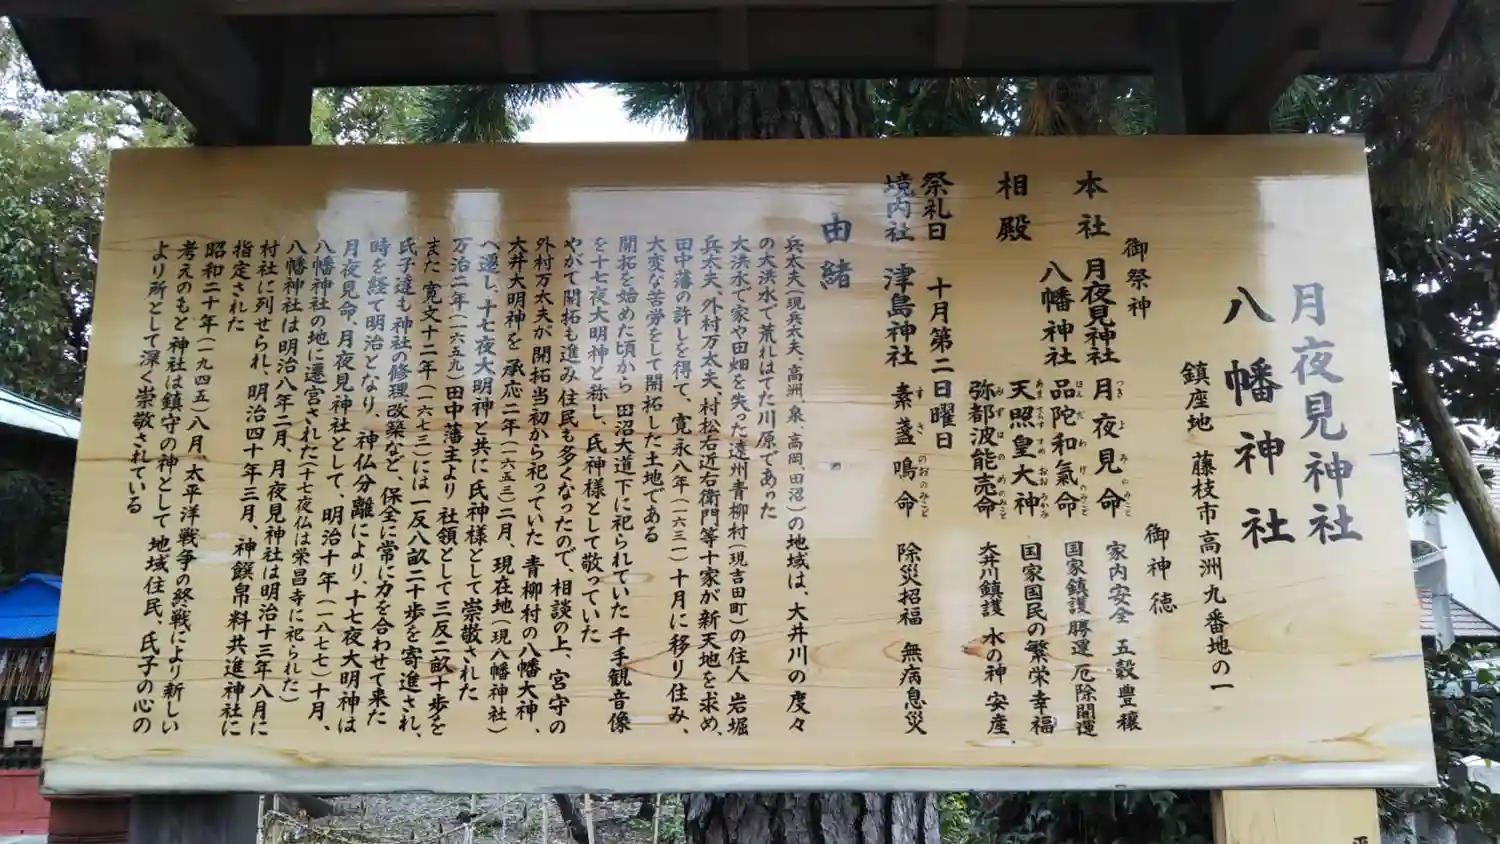 月夜見神社
八幡神社
鎮座地 藤枝市高洲九番地の一
御祭神 御神徳
本社 月夜見神社 月夜見命 家内安全 五穀豊穣
八幡神社 品陀和氣命 国家鎮護 勝運 厄除開運
相殿 天照皇大神 国家国民の繁栄幸福
弥都波能売命 大井川鎮護 水の神 安産
祭礼日 十月第二日曜日
境内社 津島神社 素盞鳴命 除災招福 無病息災
由緒
兵太夫(現兵太夫、高洲、泉、高岡、田沼)の地域は、大井川の度々
の大洪水で荒れはてた川原であった
大洪水で家や田畑を失った遠州青柳村(現吉田町)の住人 岩堀
兵太夫、外村万太夫、村松右近右衛門等十家が新天地を求め、
田中藩の許しを得て、寛永八年(一六三一)十月に移り住み、
大変な苦労をして開拓した土地である
開拓を始めた頃から 田沼大道下に祀られていた 千手観音像
を十七夜大明神と称し、氏神様として敬っていた
やがて開拓も進み 住民も多くなったので、相談の上、宮守の
外村万太夫が 開拓当初から祀っていた 青柳村の八幡大神、
大井大明神を 承応二年(一六五三)二月、現在地(現八幡神社)
へ遷し、十七夜大明神と共に氏神様として崇敬された
万治二年(一六五九)田中藩主より 社領として三反二畝十歩を
また 寛文十二年(一六七三)には一反八畝二十歩を寄進され、
氏子達も神社の修理、改築など、保全に常に力を合わせて来た
時を経て明治となり、神仏分離により、十七夜大明神は
月夜見命、月夜見神社として、明治十年(一八七七)十月、
八幡神社の地に遷宮された(十七夜仏は栄昌寺に祀られた)
八幡神社は明治八年二月、月夜見神社は明治十三年八月に
村社に列せられ、明治四十年三月、神饌帛料共進神社に
指定された
昭和二十年(一九四五)八月、太平洋戦争の終戦により新しい
考えのもと神社は鎮守の神として地域住民、氏子の心の
より所として深く崇敬されている